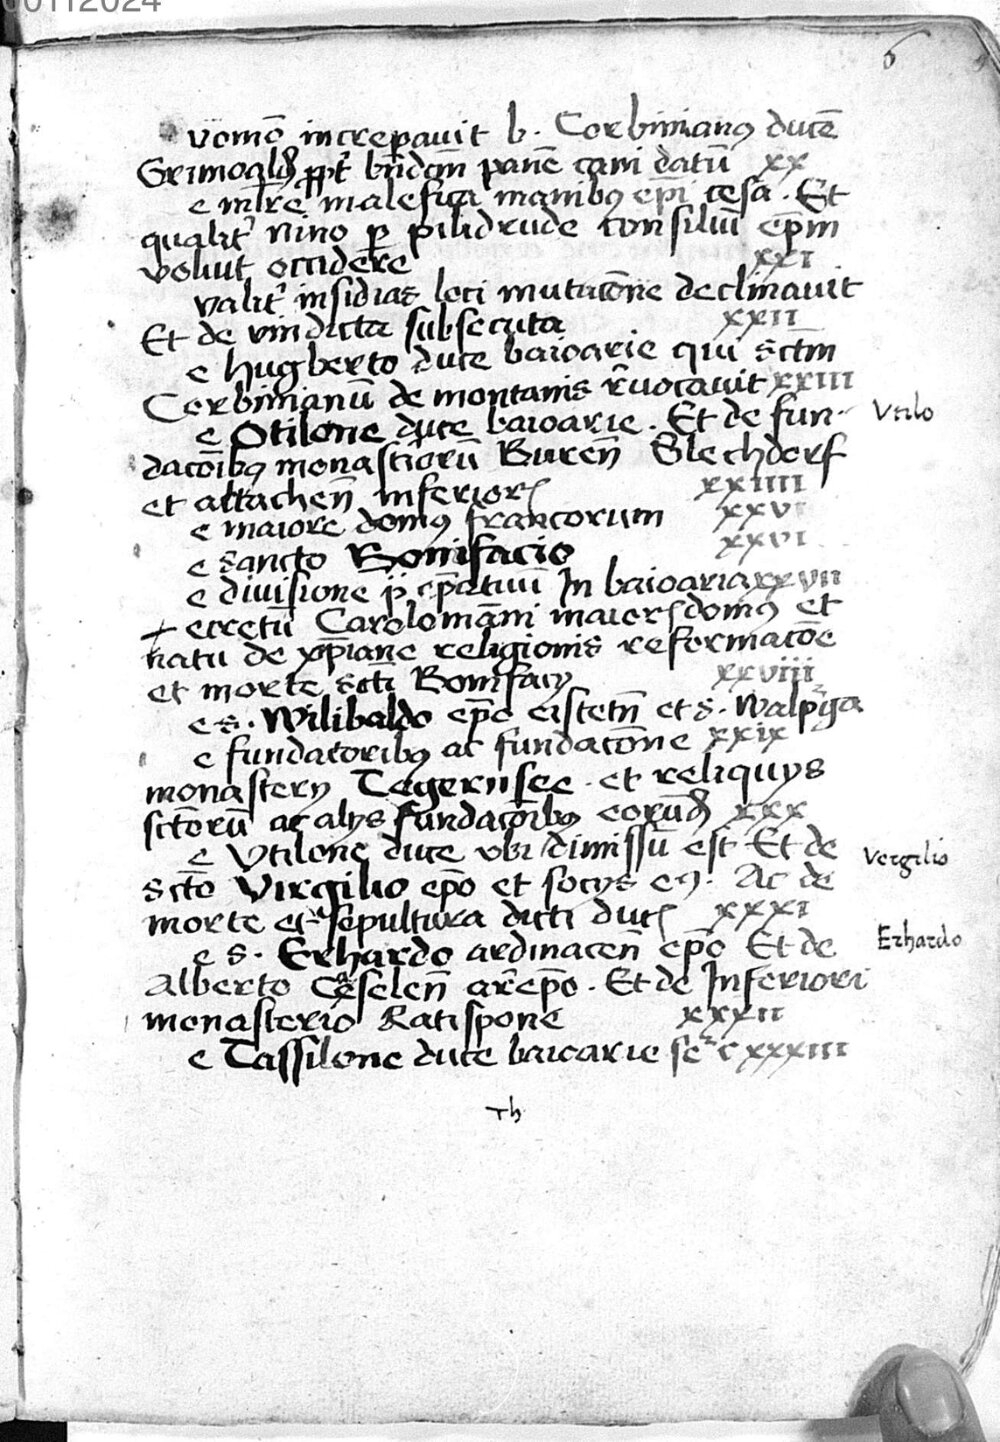 00112024
6
vomō increpavit b. Corbinianꝰ ducē
Grimoaldū ꝓpt̄ bn̄dcm̄ panē cani datū xx
e mlr̄e malefica manibꝰ epi cesa. Et
qualit᷑ nino ꝑ pilidrude consiliū ep̄m
voluit occidere xxi
valit᷑ insidias loci mutacōne declinavit
Et de vindicta subsecuta xxii
e hugberto duce baioarie qui sctm̄
Corbinianū de montanis r̄vocavit xxiii
e Otilone duce baioarie. Et de fun-
Vtilo
dacōibꝰ monastiorū Buren̄ Slechdorf
et altachen̄ inferior xxiiii
e maiore domꝰ francorum xxv
e sancto Bonifacio xxvi
e divisione ep̄atuū In baioaria xxvii
ecretū Carolomāni maior domꝰ et
natu de xp̄iane religionis reformacōe
et morte scti Bonifacij xxviii
e s. Wilibaldo ep̄o eistetn̄ et s. Walpᵉga
e fundatoribꝰ ac fundacōne xxix
monasterij Tegernsee. et reliquijs
sctōrū ac alijs fundacōibꝰ eorūd xxx
e Vtilone duce vbi dimissū est Et de
sctō Virgilio ep̄o et socijs eꝰ. Ac de
Vergilio
morte et sepultura dicti duc xxxi
e s. Erhardo ardinacen̄ ep̄o Et de
Erhardo
Alberto Caselen̄ ar̄ep̄o. Et de Inferiori
monasterio Ratispone xxxii
e Tassilone duce baioarie xxxiii
Th